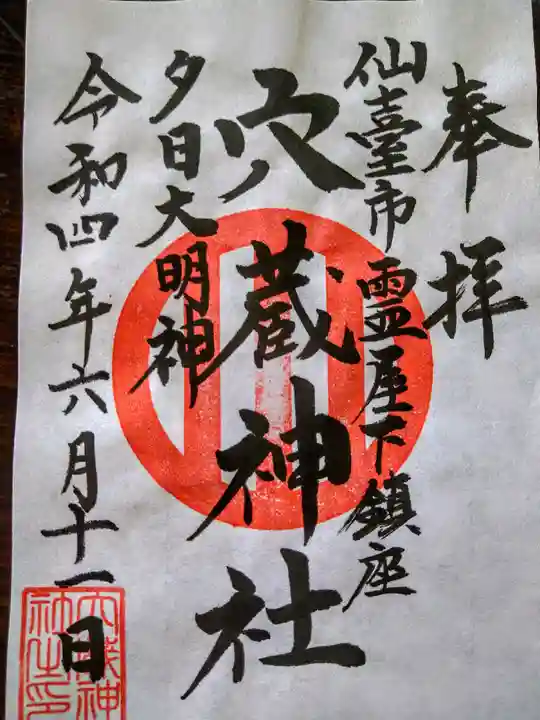 奉拝
仙臺市霊屋下鎮座
穴蔵神社
夕日大明神
令和四年六月十一日
穴蔵神社之印